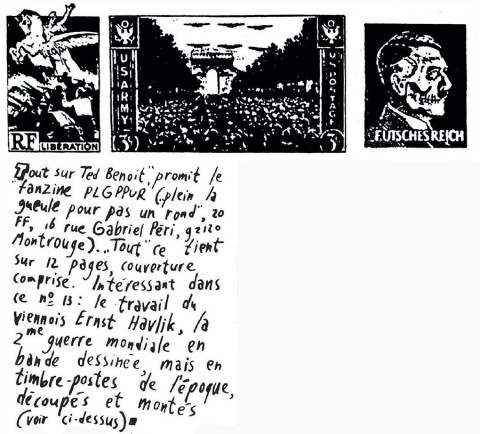 RF LIBÉRATION
U.S. ARMY
3
U.N. PORTAGE
3
FUTSCHES REICH
"Tout sur Ted Benoit", promit le
fanzine PLGPPUR ("plein la
gueule pour pas un rond", 20
FF, 16 rue Gabriel Péri, 92120
Montrouge). "Tout" ce tient
sur 12 pages, couverture
comprise. Intéressant dans
ce nº 13 : le travail du
viennois Ernst Havlik, la
2me guerre mondiale en
bande dessinée, mais en
timbre-postes de l'époque,
découpés et montés
(voir ci-dessus)